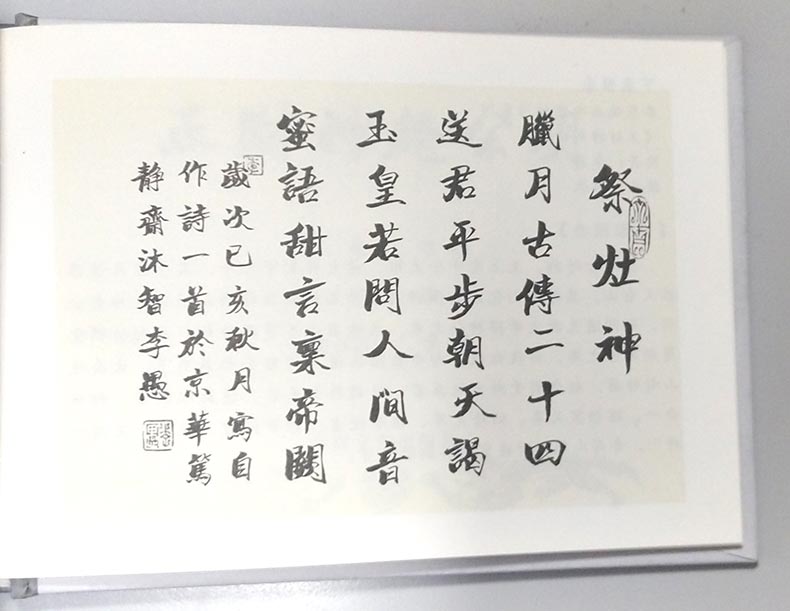 祭灶神
臘月古傳二十四
送君平步朝天謁
玉皇若問人間音
蜜語甜言稟帝闕
歲次已亥秋月寫自
作詩一首於京華篤
靜齋沐智李愚